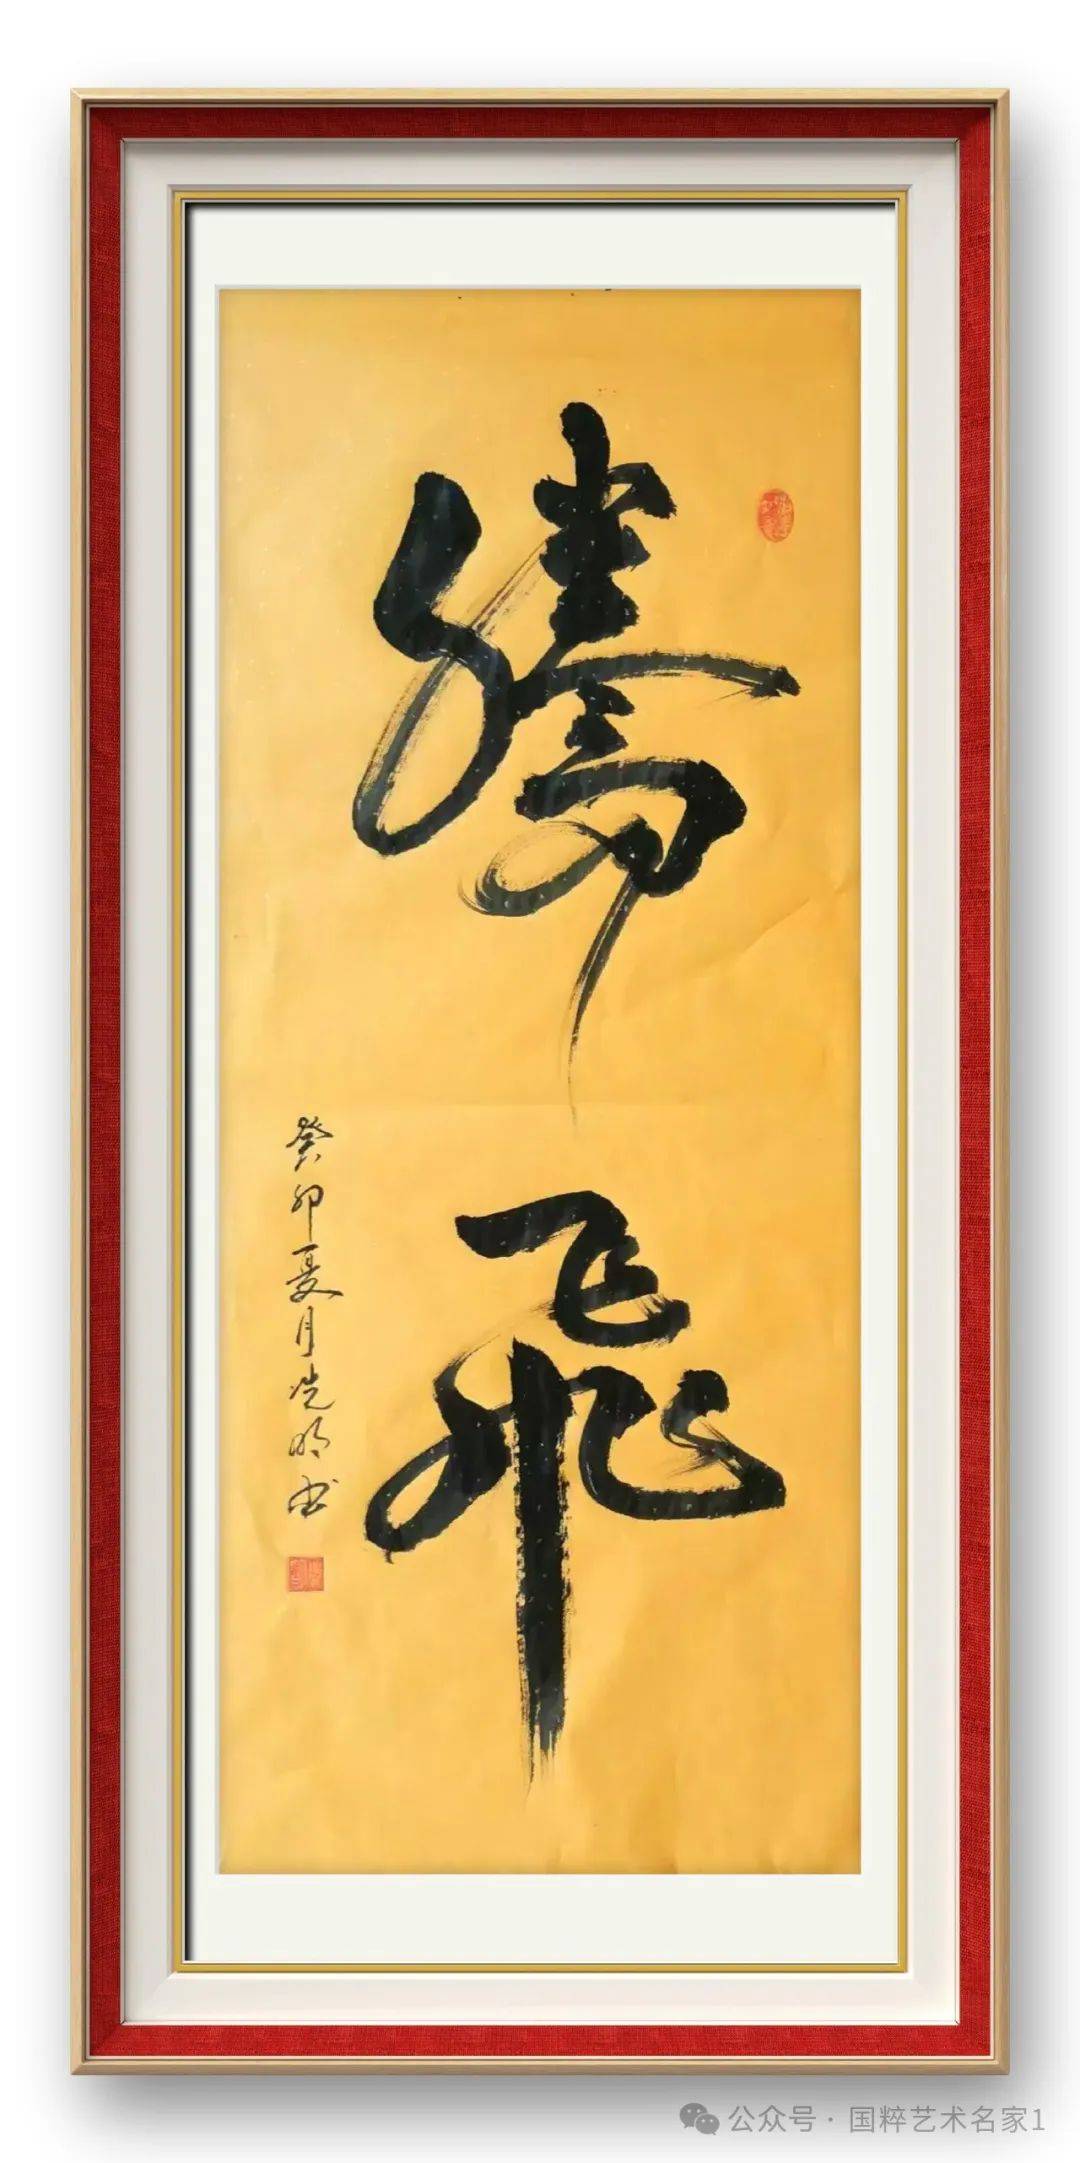 騰飛
癸卯夏月明书
公众号 · 国粹艺术名家1